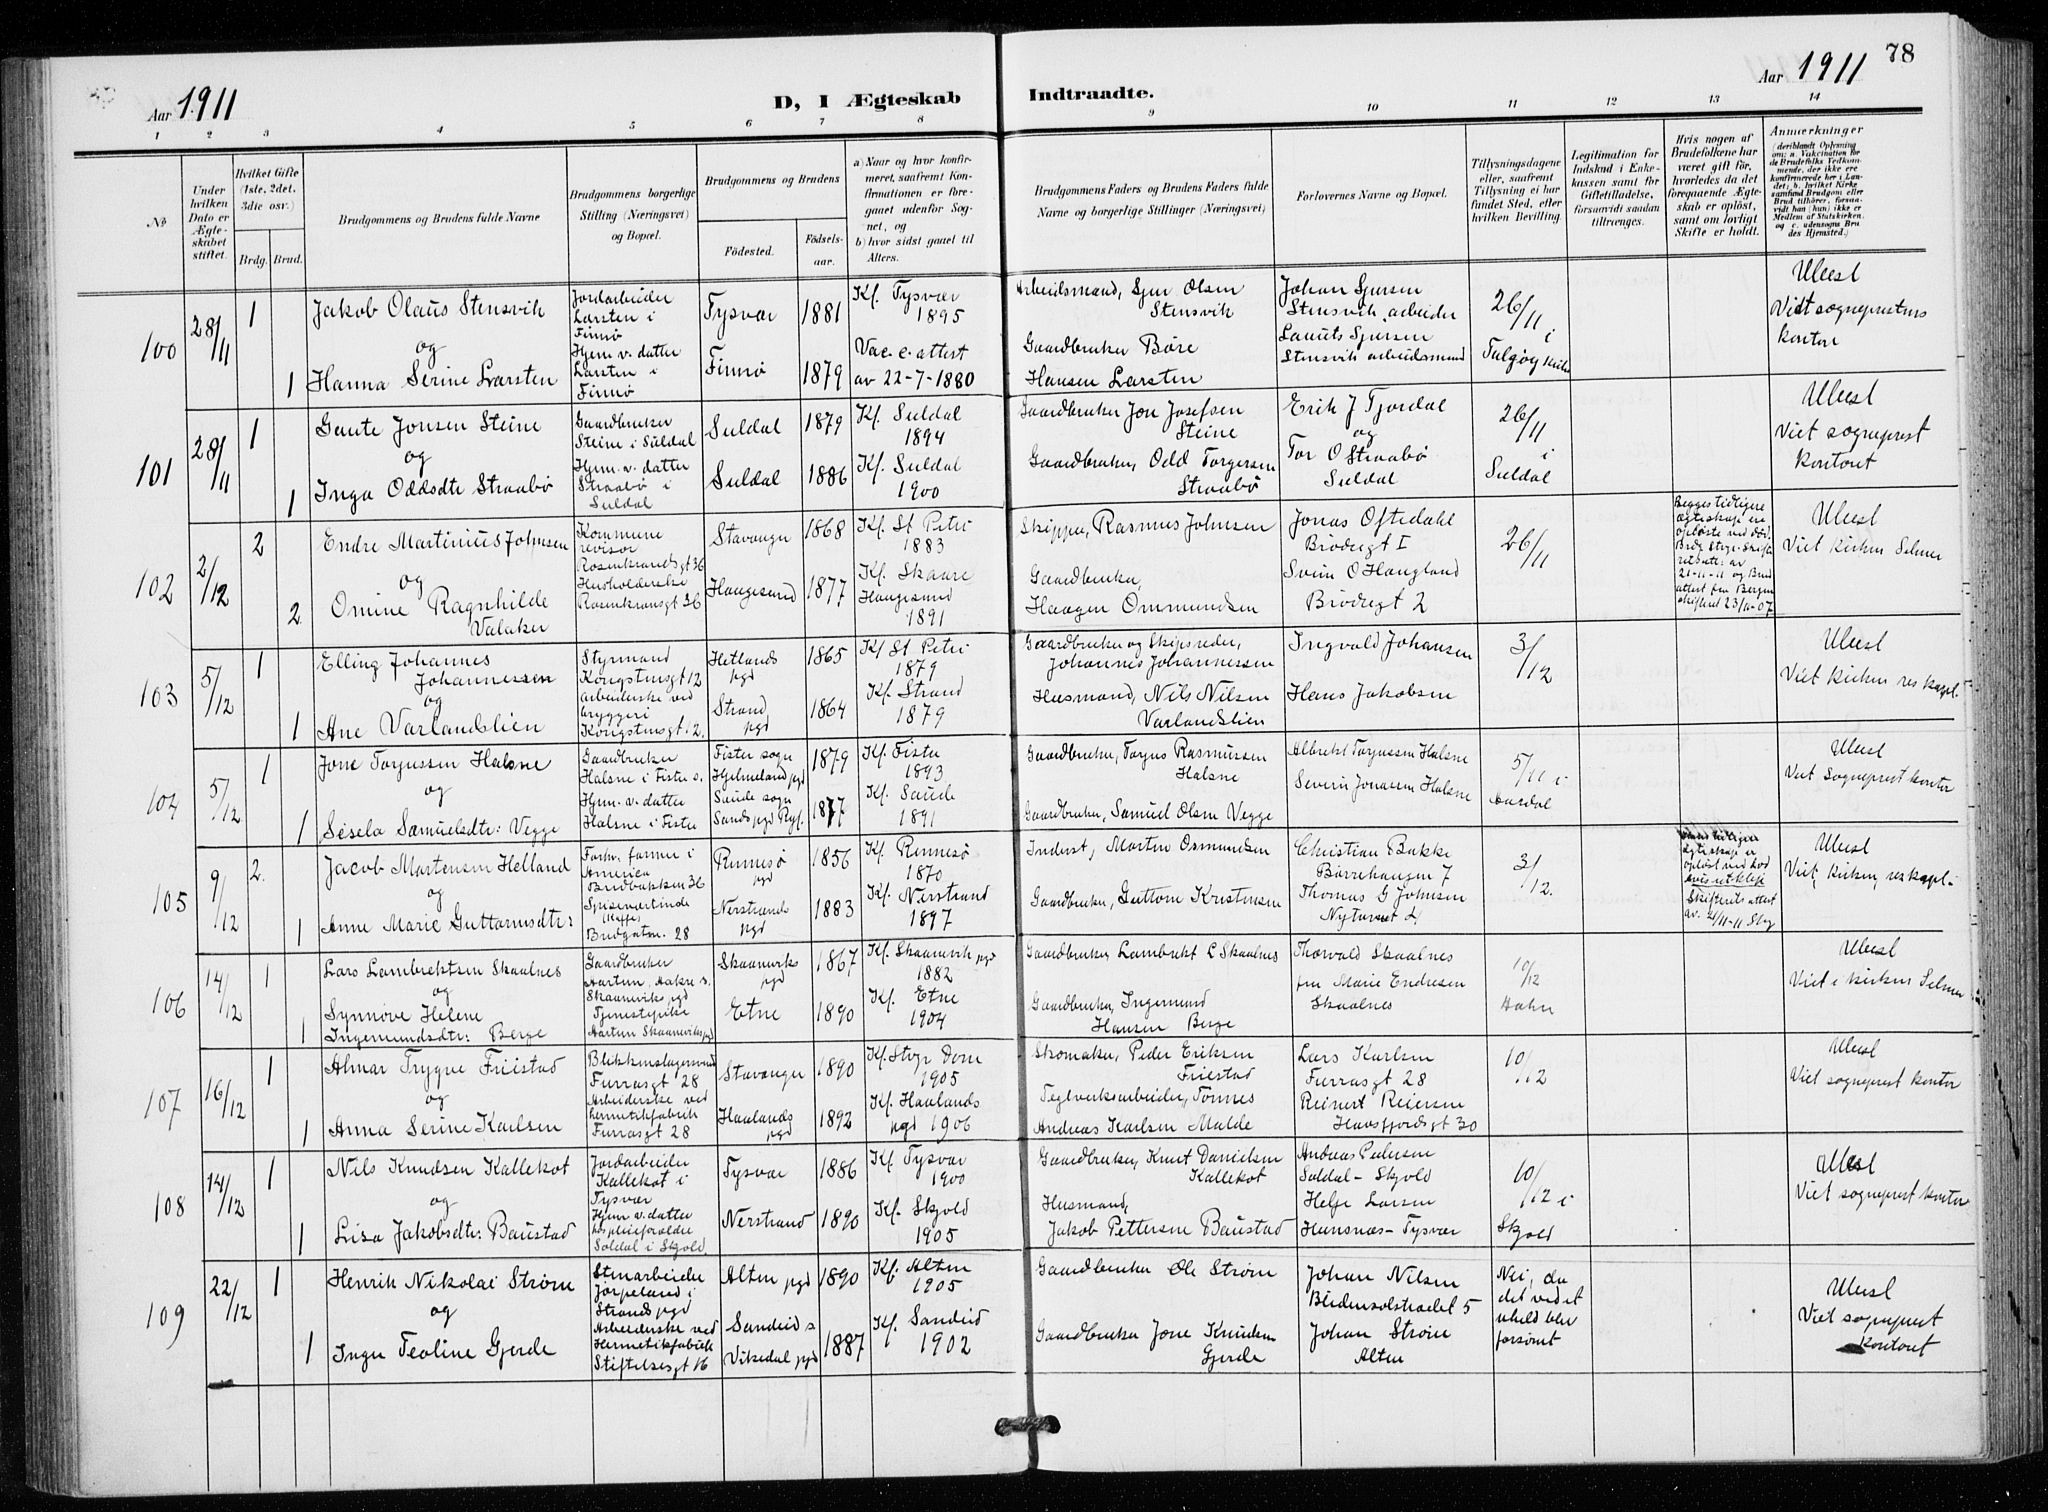 Aar 1911
D, I Ægteskab
Indtraadte.
Aar 1911
78
1 2 3 4 5 6 7 8 9 10 11 12 13 14
No
Under hvilken Dato er Ægteskabet stiftet.
Hvilket Gifte (1ste, 2det, 3die osv.)
Brdg. Brud.
Brudgommens og Brudens fulde Navne
Brudgommens borgerlige Stilling (Næringsvei) og Bopæl.
Brudgommens og Brudens
Födested.
Födselsaar.
a) Naar og hvor konfirmeret, saafremt Konfirmationen er foregaaet udenfor Sognet, og
b) hvor sidst gaaet til Alters.
Brudgommens Faders og Brudens Faders fulde Navne og borgerlige Stillinger (Næringsvei)
Forlovernes Navne og Bopæl.
Tillysningsdagene eller, saafremt Tillysning ei har fundet Sted, efter hvilken Bevilling.
Legitimation for Indskud i Enkekassen samt for Giftetilladelse, forsaavidt saadan tiltrænges.
Hvis nogen af Brudefolkene har været gift før, hvorledes da det foregaaende Ægteskab er opløst, samt om lovligt Skifte er holdt.
Anmerkninger
(deriblandt Oplysning om: a. Vakcination for de Brudefolks Vedkommende, der ikke er konfirmerede her i Landet; b. hvilket Kirkesamfund Brudgom eller Brud tilhører, forsaavidt han (hun) ikke er Medlem af Statskirken, og c. udensogns Brudes Hjemsted.)
100
28/11
1
Jakob Olaus Stensvik
og
1
Hanna Serine Larsten
Jordarbeider
Larsten i
Finnø
Hjem. v. datter
Larsten i
Finnø
Tysvær 1881
Finnø 1879
Kf. Tysvær
1895
Vac. e. attest
av 22-7-1880
Arbeidsmand, Sjur Olsen
Stensvik
Gaardbruker Børe
Hansen Larsten
Johan Sjursen
Stensvik, arbeider
Lauritz Sjursen
Stensvik arbeidsmand
26/11 i
Talgøy kirke
Ulæst
Viet sogneprestens
kontor
101
28/11
1
Gaute Jonsen Steine
og
1
Inga Oddsdtr Straabø
Gaardbruker
Steine i Suldal
Hjem. v. datter
Straabø i
Suldal
Suldal 1879
Suldal 1886
Kf. Suldal
1894
Kf. Suldal
1900
Gaardbruker Jon Josefsen
Steine
Gaardbruker, Odd Torgersen
Straabø
Erik J Fjordal
og
Tor O Straabø
Suldal
26/11
i
Suldal
Ulæst
Viet sogneprest
kontoret
102
2/12
2
Endre Martinius Johnsen
og
2.
Omine Ragnhilde
Valaker
Kommune
revisor
Rosenkrandsgt 36
Husholderske
Rosenkransgt 36
Stavanger 1868
Haugesund 1877
Kf. St Petri
1883
Kf. Skaare
Haugesund
1891
Skipper, Rasmus Johnsen
Gaardbruker,
Haagen Ommundsen
Jonas Oftedahl
Brødregt I
Svein O Haugland
Brødregt 2
26/11
Begges tidligere
ægteskap er
opløste ved død.
21-11-11 og Brud
attest fra Bergen
skifteret 23/11-07
Ulæst
Viet kirken Selmer
103
5/12
1
Elling Johannes
Johannessen
og
1
Ane Varlandslien
Styrmand
Kongstensgt 12
arbeiderske ved
bryggeri
Kongstensgt 12.
Hetlands
pgd
1865
Strand
pgd
1864
Kf St Petri
1879
Kf. Strand
1879
Gaardbruker og Skipsreder,
Johannes Johannessen
Husmand, Nils Nilsen
Varlandslien
Ingvald Johansen
Hans Jakobsen
3/12
Ulæst
Viet kirken res kapl.
104
5/12
1
Jone Torgussen Halsne
og
1
Sesela Samuelsdtr: Vegge
Gaardbruker
Halsne i Fister s.
Hjem. v. datter
Halsne i Fister
Fister sogn
Hjelmeland pgd
1879
Saude sogn
Sands pgd Ryf.
1877
Kf. Fister
1893
Kf. Saude
1891
Gaardbruker, Torgus Rasmussen
Halsne
Gaardbruker, Samuel Olsen Vegge
Albrekt Torgussen Halsne
Severin Jonassen Halsne
5/11 i
Aardal
Ulæst
Viet Sogneprest kontor
105
9/12
2.
Jacob Martensen Helland
og
1
Anne Marie Guttormsdtr:
Forhv. farmer i
America
Bredbakken 36
Spisevertinde
Bredgaten. 28
Rennesø
pgd
1856
Nerstrands
pgd
1883
Kf. Rennesø
1870
Kf. Nerstrand
1897
Inderst, Morten Osmundsen
Gaardbruker, Guttorm Kristensen
Christian Bakke
Børrehaugen 7
Thomas G Johnsen
Nytorvet 4
3/12.
ægteskap er
opløst ved død
Skifterets attest
av. 21/11-11 Stvg
Ulæst
Viet, kirken, res kapl.
106
14/12
1
Lars Lambrektsen Skaalnes
og
Synnøve Helene
1
Ingemundsdtr: Berge
Gaardbruker
Aarten, Aakre s.
Skaanevik pgd
Tjenestepike
Aarten Skaaneviks pgd
Skaaneviks
pgd
1867
Etne 1890
Kf. Skaanevik pgd
1882
Kf. Etne
1904
Gaardbruker Lambrekt L Skaalnes
Gaardbruker, Ingemund
Hansen Berge
Thorvald Skaalnes
fru Marie Endresen
Skaalnes
10/12
Hahn
Ulæst
Viet i kirken Selmer
107
16/12
1
Almar Trygve Friestad
og
1
Anna Serine Karlsen
Blikkenslagersvend
Furrasgt 28
Arbeiderske ved
hermetikfabrik
Furrasgt 28
Stavanger 1890
Haalands
pgd
1892
Kf. Stvgr Dom
1905
Kf. Haalands
pgd 1906
Skomaker, Peder Eriksen
Friestad
Teglverksarbeider, Tønnes
Andreas Karlsen Malde
Lars Karlsen
Furrasgt 28
Reinert Reiersen
Hafsfjordsgt 30
10/12
Ulæst
Viet sogneprest kontor
108
14/12
1
Nils Knudsen Kallekot
og
1
Lisa Jakobsdtr: Baustad
Jordarbeider
Kallekot i
Tysvær
Hjem v. datter
hos pleieforældre
Søldal i Skjold
Tysvær 1886
Nerstrand 1890
Kf. Tysvær
1900
Kf. Skjold
1905
Gaardbruker, Knut Danielsen
Kallekot
Husmand,
Jakob Pettersen Baustad
Andreas Pedersen
Søldal - Skjold
Helge Larsen
Hunsnæs - Tysvær
10/12 i
Skjold
Ulæst
Viet sogneprest kontor
109
22/12
1
Henrik Nikolai Strøm
og
1
Inga Teoline Gjerde
Stenarbeider
Jørpeland i
Strands pgd
Arbeiderske ved
Hermetikfabrik
Stiftelsesgt 16
Alten pgd 1890
Sandeid s
Vikedal pgd
1887
Kf. Alten
1905
Kf. Sandeid
1902
Gaardbruker Ole Strøm
Gaardbruker Jone Knudsen
Gjerde
Johan Nilsen
Bledensolstrædet 5
Johan Strøm
Alten
Nei, da
det ved et
uheld blev
forsømt
Ulæst
Viet sogneprest
kontoret